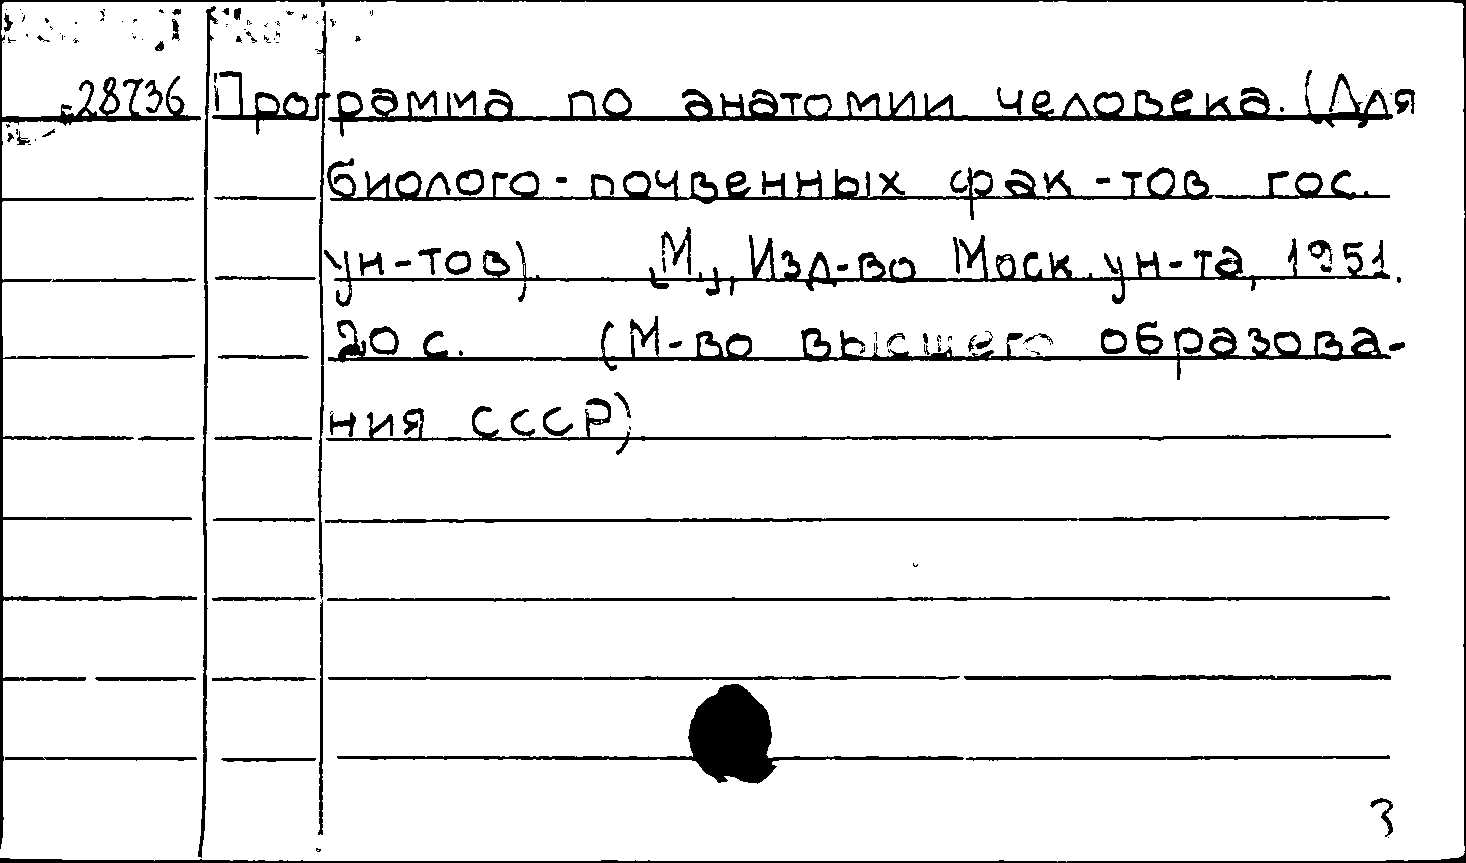 28736 Программа по анатомии человека. (Для
биолого-почвенных фак-тов гос.
ун-тов). [М.], Изд-во Моск. ун-та, 1951.
20 с. (М-во высшего образова-
ния СССР)
3